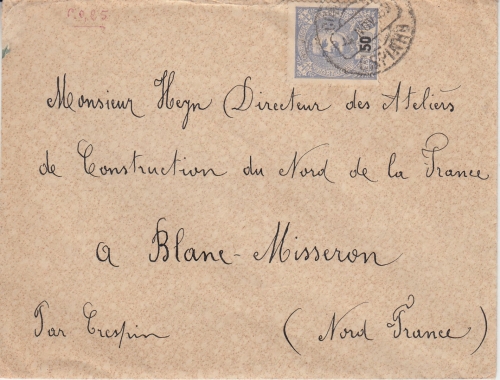 50
Monsieur Heyn Directeur des Ateliérs
de Construction du Nord de la France
a Blanc-Misseron
Par Crespin (Nord France)